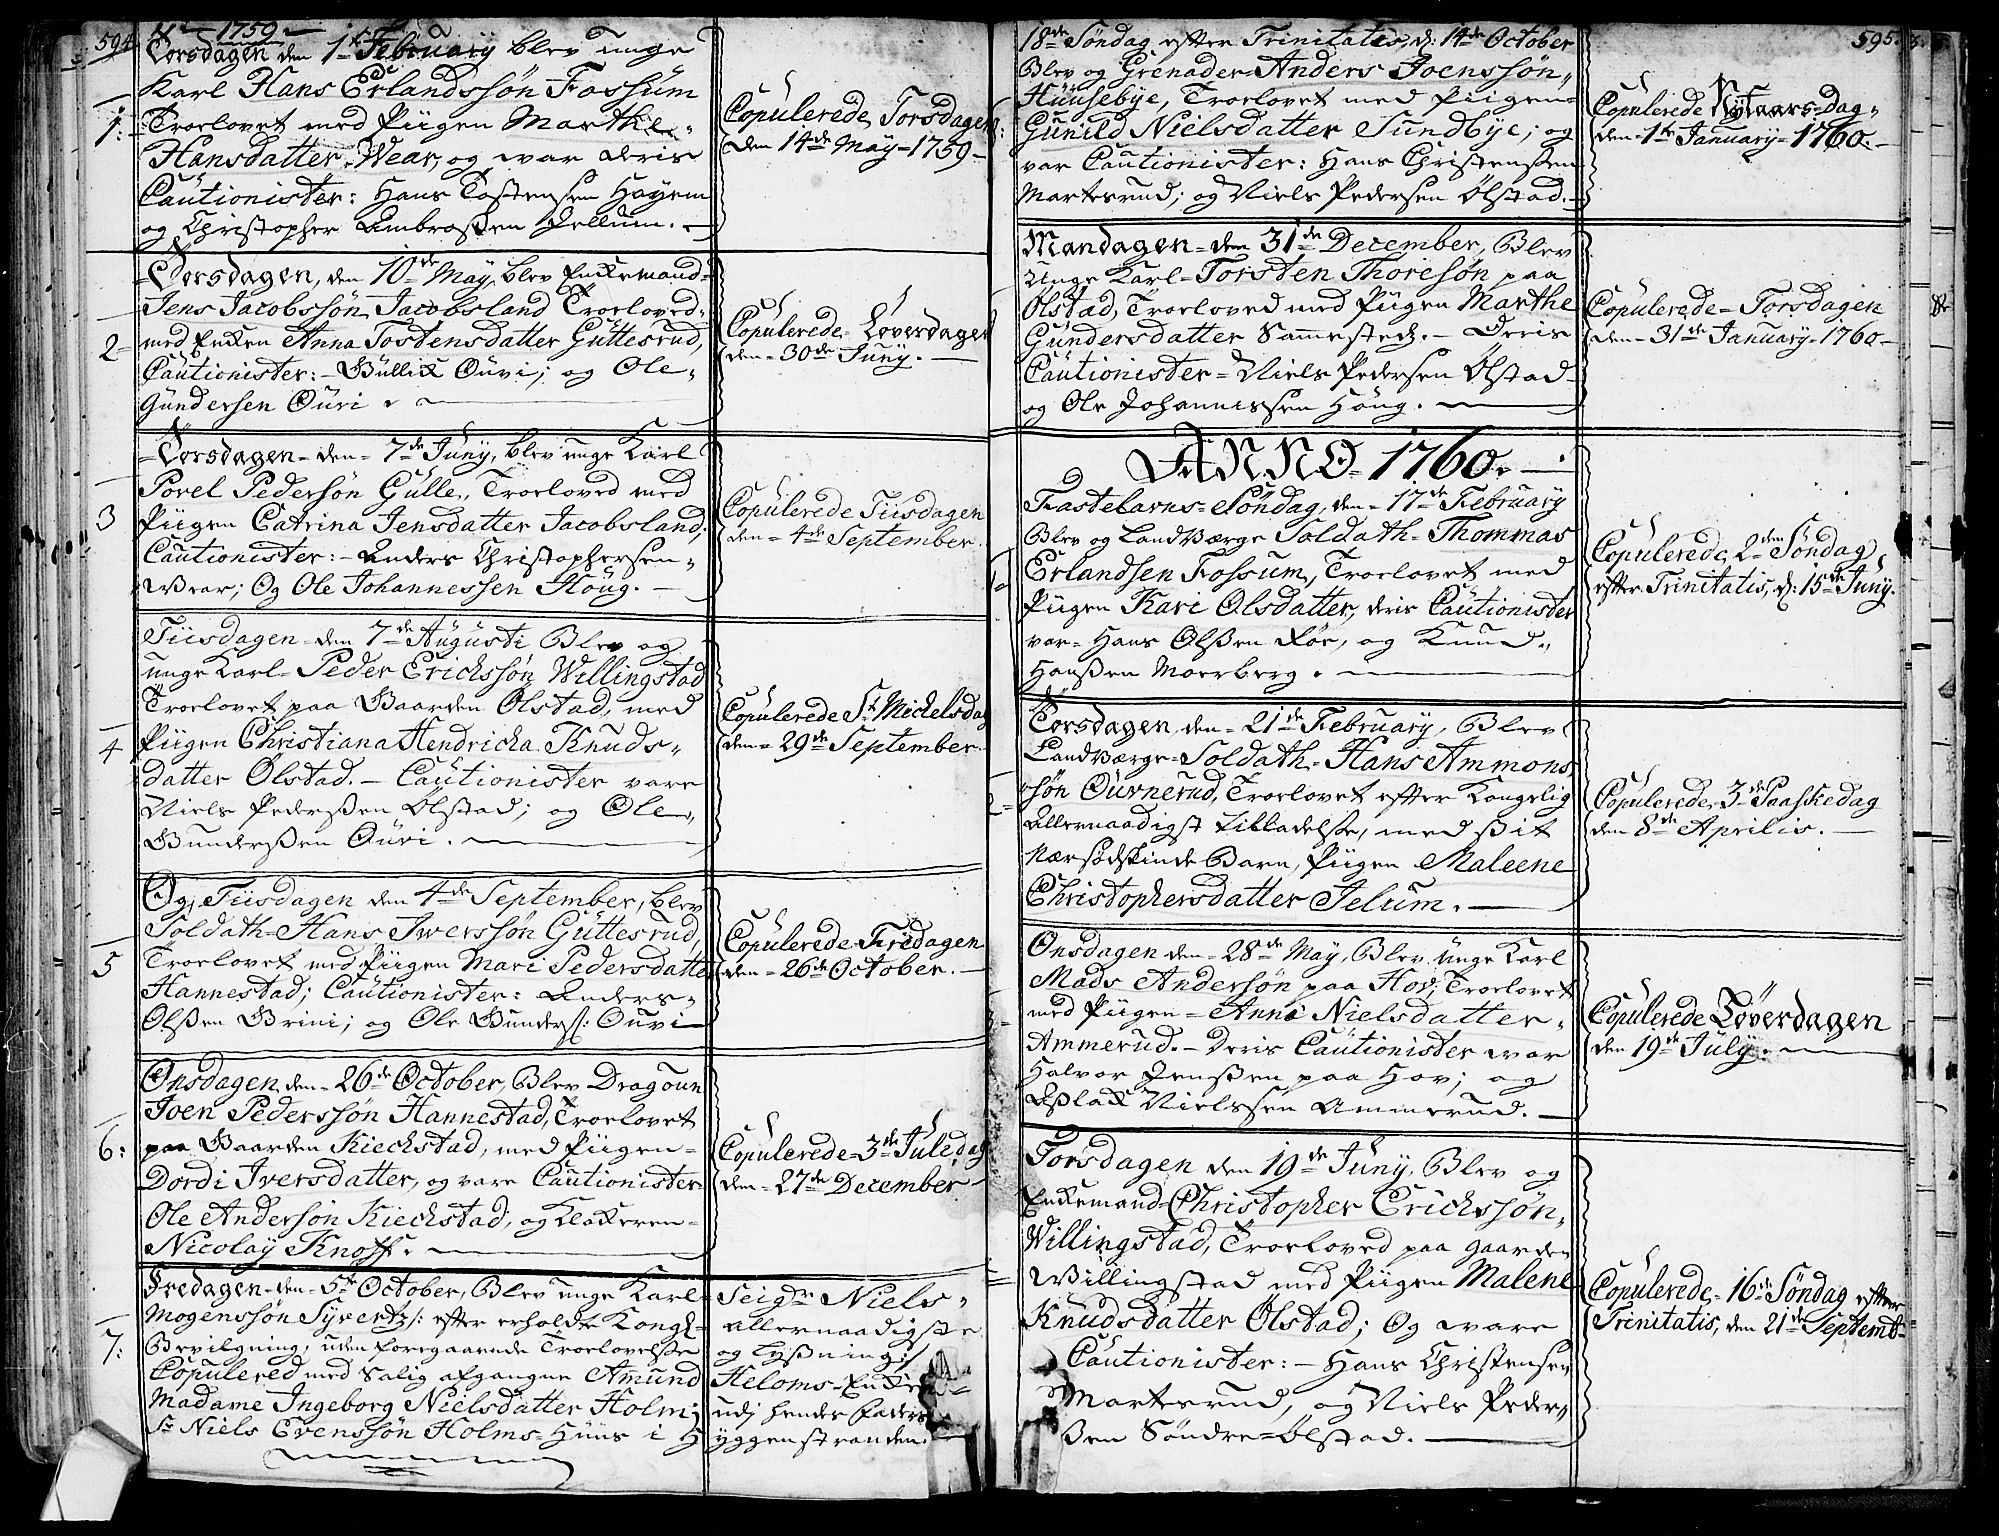 594.
Ao 1759.
Torsdagen den 1ste February blev unge
Karl Hans Erlandssøn Fossum
Troelovet med Piigen Marthe
Hansdatter Wear, og war deris
Cautionister: Hans Tostensen Hayem
og Christopher Ambroßen Jellum.
1:
Copulerede Torsdagen
den 14de May 1759
Torsdagen, den 10de May, blev Enkemand
Jens Jacobssøn Jacobsland Troeloved
med Enken Anna Tostensdatter Guttesrud,
Cautionister: Bullik Ouvi; og Ole
Gundersen Ouri
2
Copulerede Løverdagen
den 30de Juny.
Torsdagen den 7de Juny, blev unge Karl
Povel Pedersøn Gulle, Troeloved med
Piigen Catrina Jensdatter Jacobsland;
Cautionister: Anders Christophersen
Wear; Og Ole Johannessen Houg.
3
Copulerede Tiisdagen
den 4de September.
Tiisdagen den 7de Augusti Blev og
unge Karl Peder Erichssøn Willingstad
Troelovet paa Gaarden Olstad, med
Piigen Christiana Hendricha Knuds-
datter Olstad. Cautionister vare
Niels Pederßen Ølstad; og Ole
Gunderßen Ouri.
4
Copulerede St Michelsdag
den 29de September.
Og Tiisdagen den 4de September, blev
Soldath Hans Iverssøn Guttesrud,
Troelovet med Piigen Mari Pedersdatter
Hannestad; Cautionister: Anders
Olßen Brini; og Ole Gunders: Ouvi
5
Copulerede Fredagen
den 26de October.
Onsdagen den 26de October, Blev Dragoun
Joen Pederssøn Hannestad, Troelovet
paa Gaarden Kiechstad, med Piigen
Dordi Iversdatter, og vare Cautionister
Ole Andersøn Kiechstad, og Klokeren
Nicolay Knoff.
6:
Copulerede 3de Juledag
den 27de December
Fredagen den 5te October, Blev unge Karl Seigr Niels
Mogenssøn Syvertz: efter erholdte Kongl: allernaadigste
Bevilgning, uden foregaaende Troelovelße og Lysning:
Copulered med Salig afgangne Amund Heloms Enke
Madame Ingeborg Nielsdatter Holm; udj hendes Faders
Sr Niels Evenssøn Holms Huus i Hyggenstranden.
7:
595.
18de Søndag efter Trinitatis, d: 14de October
Blev og Grenader Anders Joenssøn
Huusebye, Troelovet med Piigen
Gunild Nielsdatter Sundbye; og
var Cautionister: Hans Christensen
Martesrud; og Niels Pedersen Ølstad.
Copulerede Nytaars Dag
den 1te January 1760.
Mandagen den 31de December, Blev
Unge Karl Torsten Thoresøn paa
Olstad, Troeloved med Piigen Marthe
Gundersdatter Sammested. Deris
Cautionister Niels Pedersen Ølstad
og Ole Johannessen Houg.
Copulerede Torsdagen
den 31de January 1760
ANNO 1760.
Fastelavns Søndag, den 17de February
Blev og Landværge Soldath Thommas
Erlandsen Fossum, Troelovet med
Piigen Kari Olsdatter, deris Cautionister
var Hans Olßen Røe, og Knud
Hanßen Moerberg.
1
Copulerede, 2den Søndag
efter Trinitatis, d: 15de Juny.
Torsdagen, den 21de February, Blev
Landværge Soldath Hans Ammons
søn Ouvnerud, Troelovet efter Kongelig
Allernaadigst Tilladelße, med sit
Nærsødskinde Barn, Piigen Maleene
Christophersdatter Jelum.
2
Copulerede, 3de Paaskedag
den 8de Aprilis.
Onsdagen den 28de May, Blev unge Karl
Mads Andersøn paa Hov, Troelovet
med Piigen Anne Nielsdatter
Ammerud. Deris Cautionister war
Halvor Jenßen paa Hov; og
Aslak Nielssen Ammerud.
Copulerede Løverdagen
den 19de July.
Torsdagen den 19de Juny, Blev og
Enkemand Christopher Erichssøn
Willingstad, Troeloved paa gaarden
Willingstad med Piigen Malene
Knudsdatter Olstad; Og ware
Cautionister: Hans Christensen
Martesrud, og Niels Peder-
ßen Søndre Ølstad.
Copulerede, 16de Søndag efter
Trinitatis, den 21de Septemb